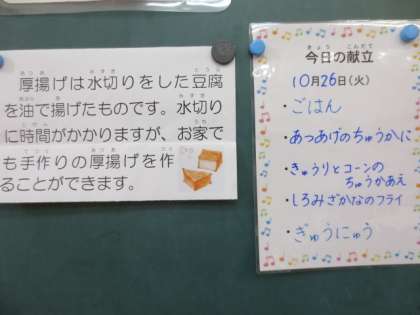 厚揚げは水切りをした豆腐
を油で揚げたものです。水切り
に時間がかかりますが、お家で
も手作りの厚揚げを作
ることができます。
今日の献立
10月26日(火)
・ごはん
・あつあげのちゅうかに
・きゅうりとコーンの
ちゅうかあえ
・しろみざかなのフライ
・ぎゅうにゅう